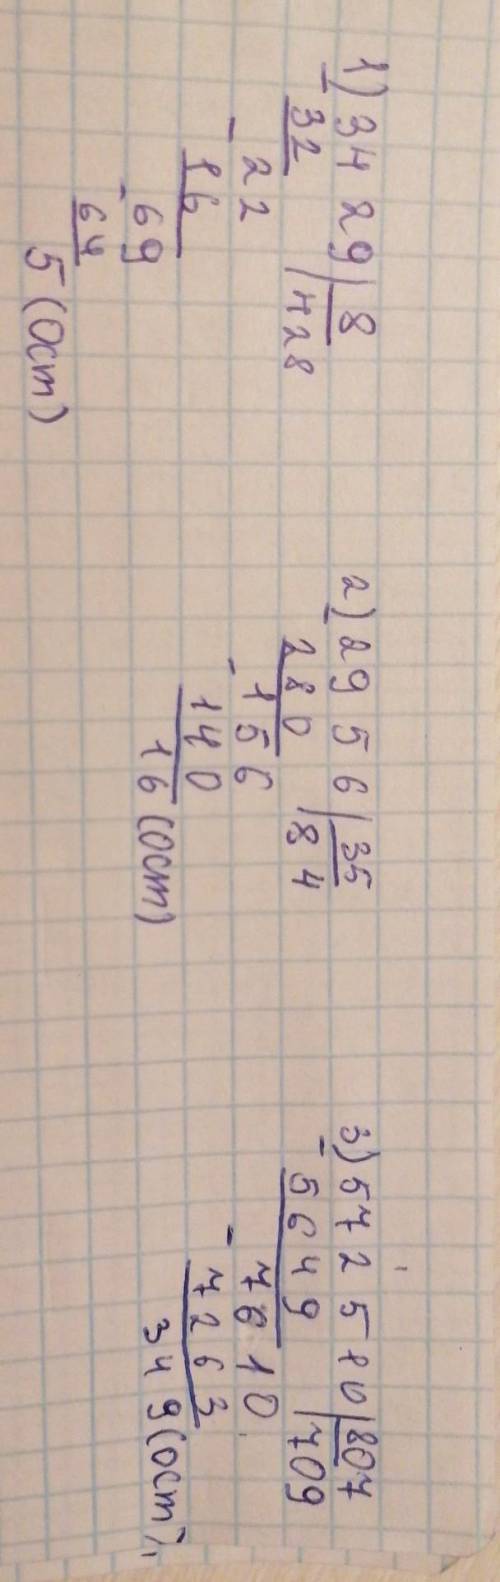 1) 3429 | 8
- 32 | 428
- 22
16
- 69
64
5 (Ост)
2) 2956 | 35
- 280 | 84
- 156
140
16 (ост)
3) 572510 | 807
- 5649 | 709
- 7610
7263
349 (ост),